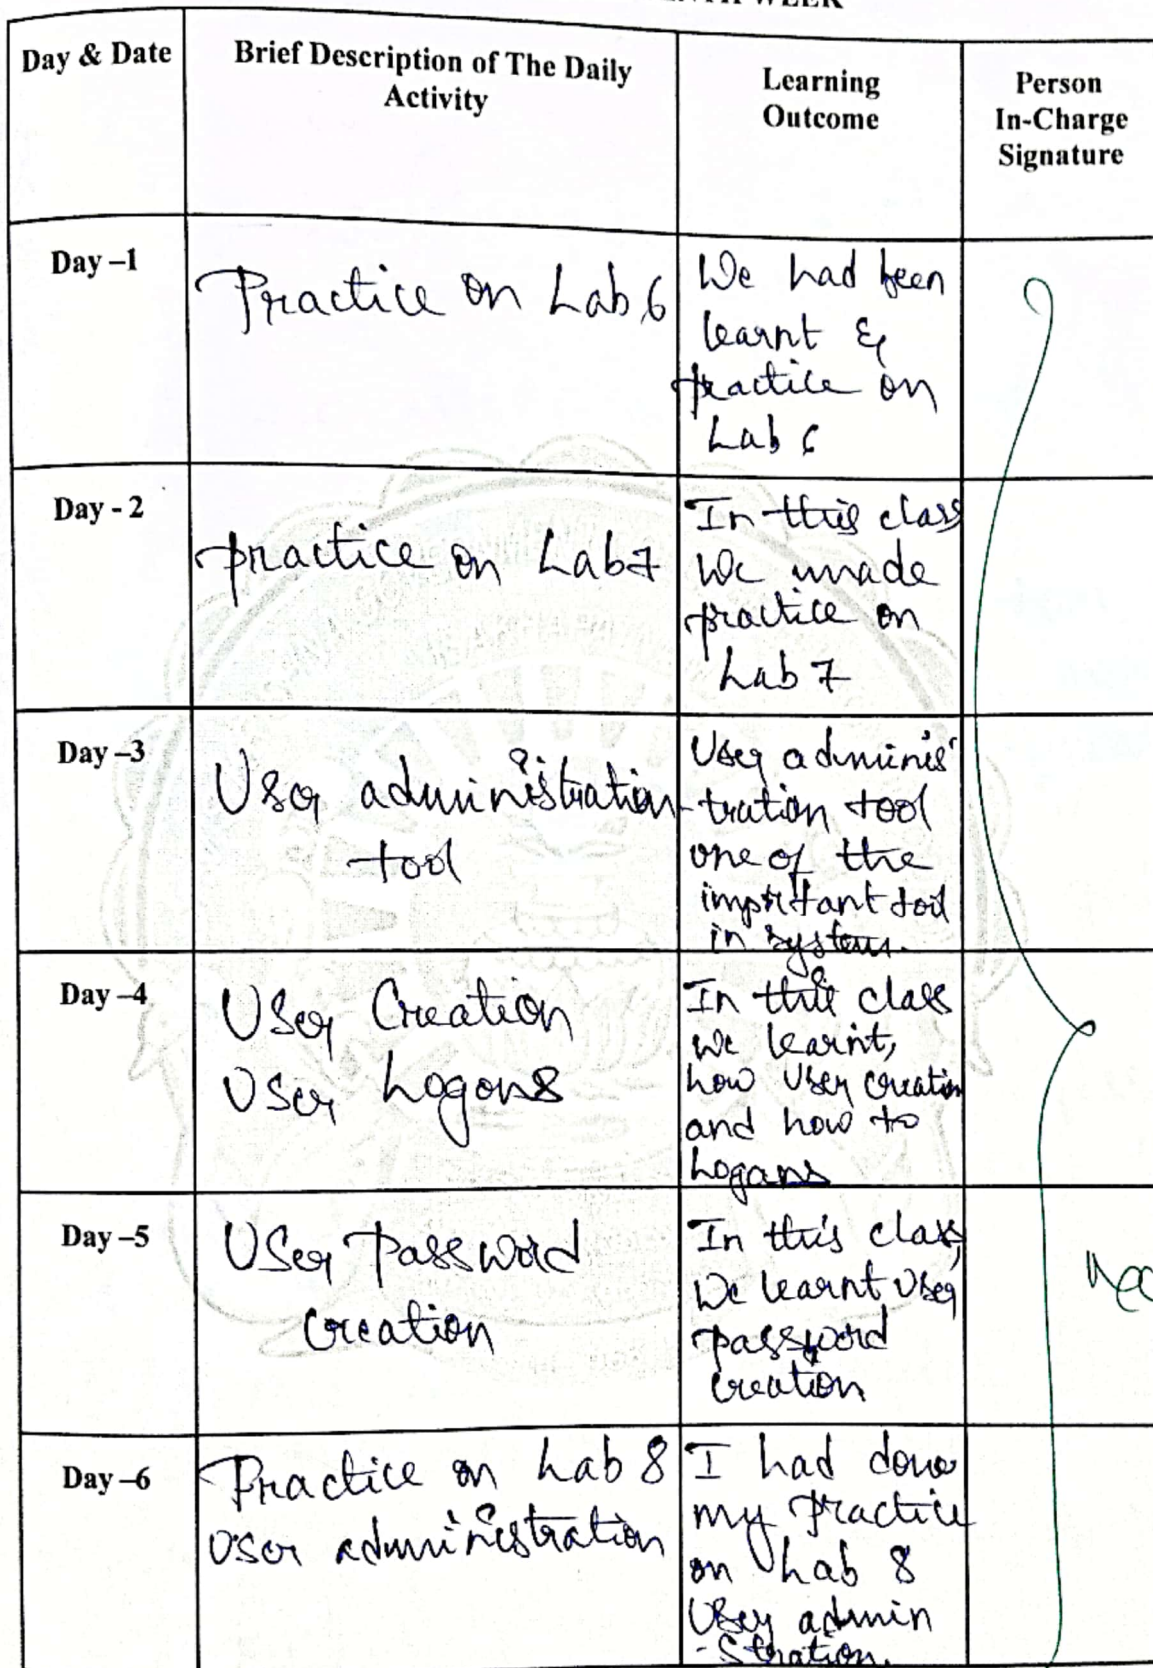 WEEK
Day & Date
Brief Description of The Daily
Activity
Learning
Outcome
Person
In-Charge
Signature
Day –1
Practice on Lab 6
We had been
learnt &
practice on
Lab 6
Day - 2
practice on Lab 7
In this class
We made
practice on
Lab 7
Day –3
User administration
tool
User adminis
-tration tool
one of the
important tool
in system.
Day –4
User Creation
User Logons
In this class
we learnt,
how User creation
and how to
Logans
Day –5
User Password
Creation
In this class,
We learnt User
password
creation
Day –6
Practice on Lab 8
User administration
I had done
my Practice
on Lab 8
User admin
-stration.